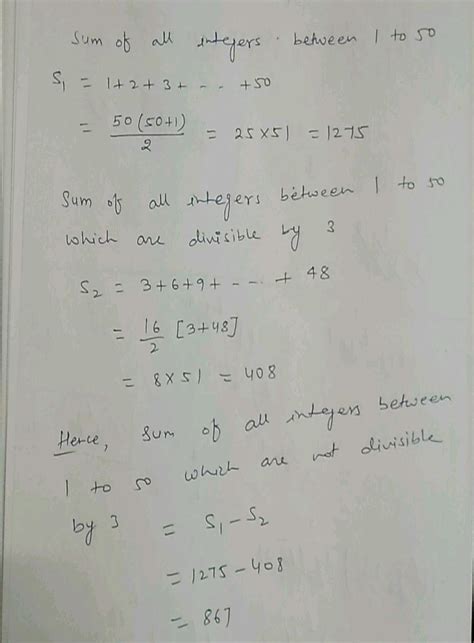 Sum of all integers between 1 to 50
S₁ = 1+2+3+ - - - +50
= 50(50+1)/2 = 25×51 = 1275
Sum of all integers between 1 to 50
which are divisible by 3
S₂ = 3+6+9+ - - - + 48
= 16/2 [3+48]
= 8×51 = 408
Hence, sum of all integers between
1 to 50 which are not divisible
by 3 = S₁-S₂
= 1275-408
= 867